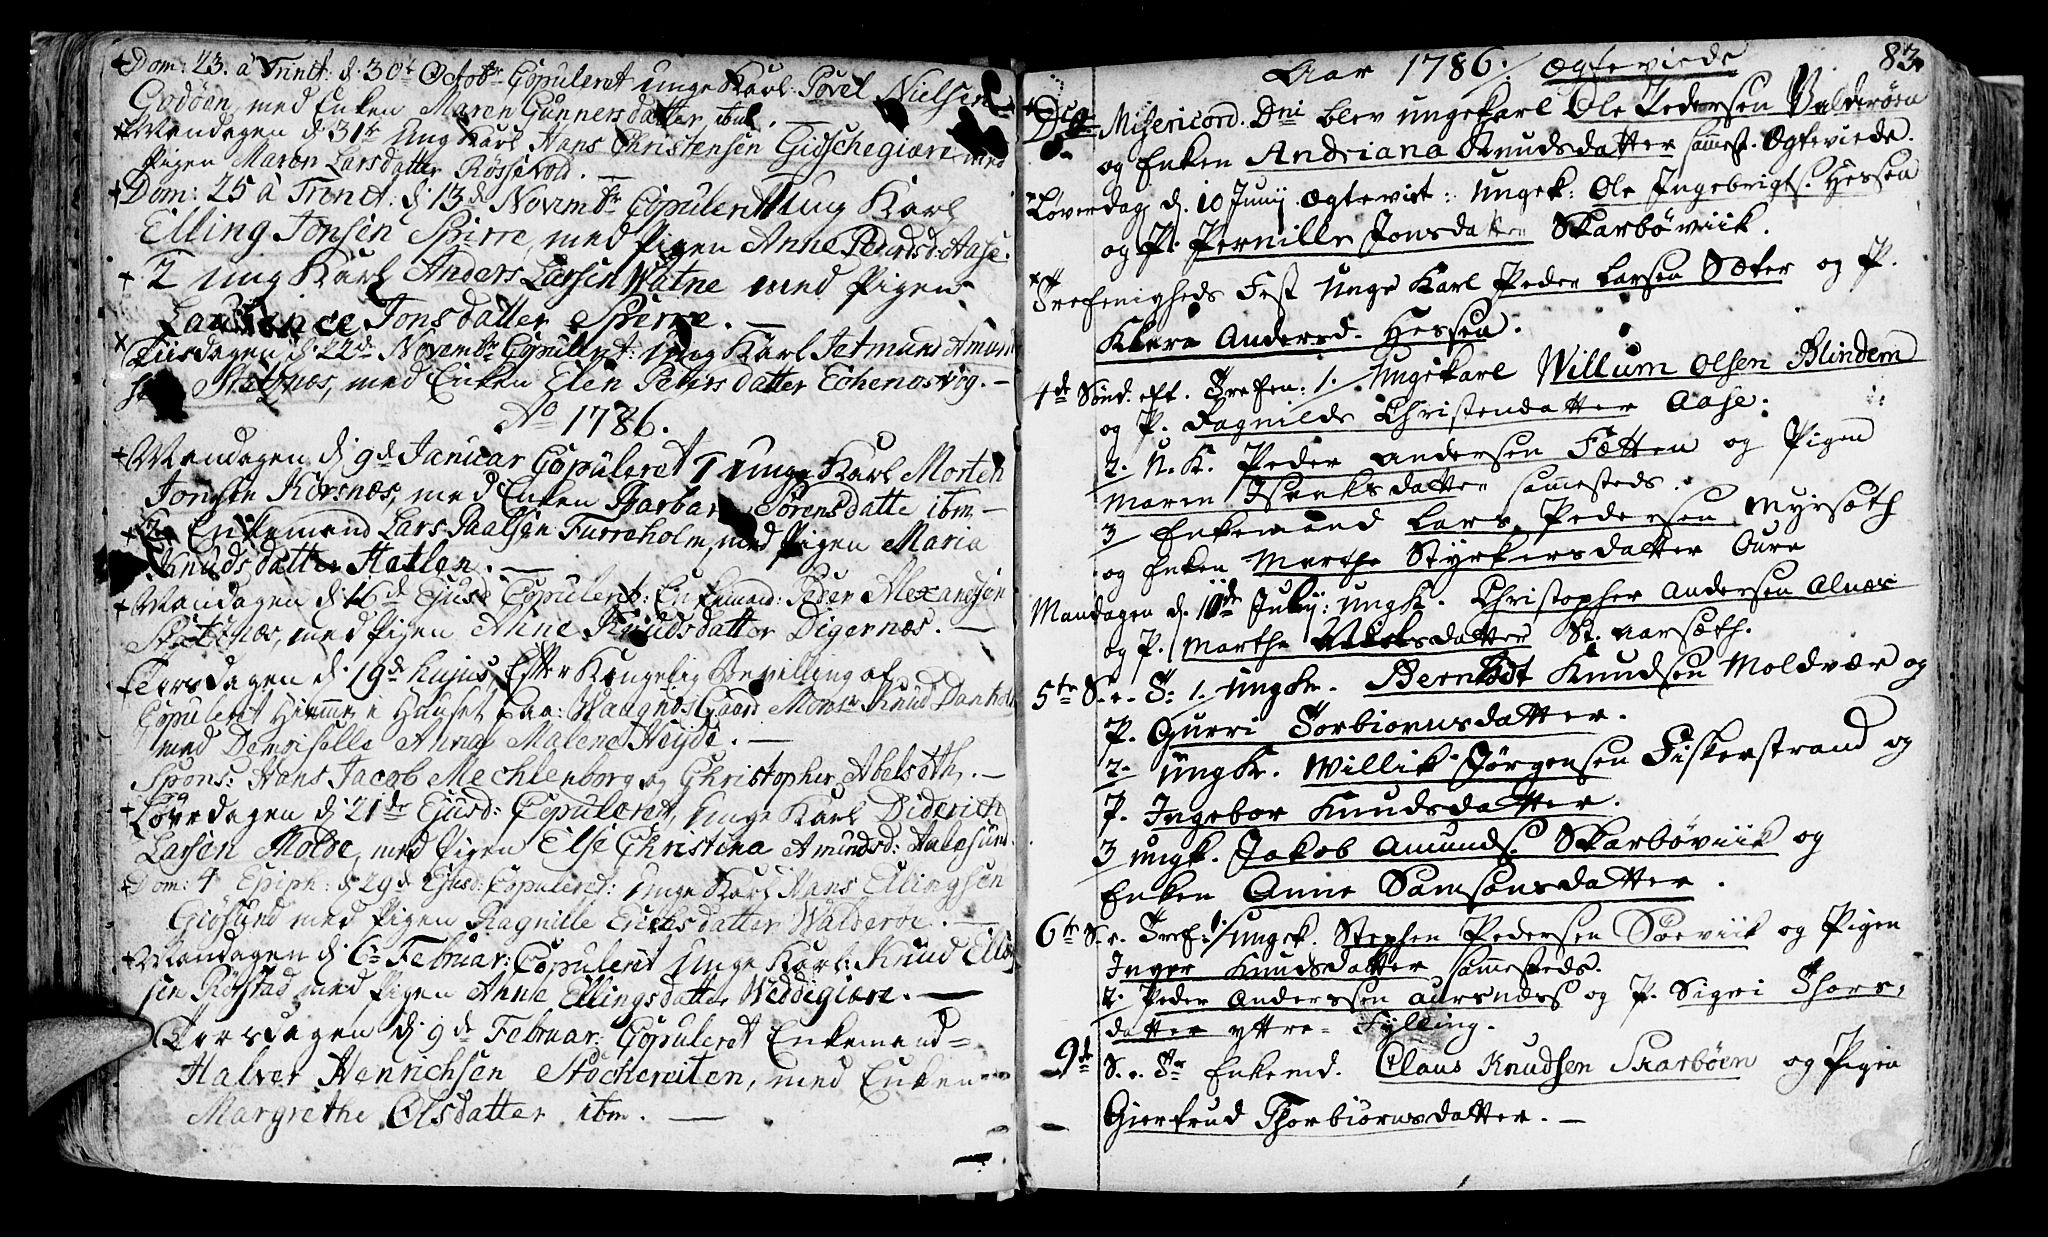 + Dom: 23. à Trinit: d. 30t Octobr Copuleret unge Karl Povel Nielsen
Godøen, med Enken Maren Gunnersdatter ibm. —
+ Mandagen d 31te Ung Karl Hans Christensen Giøschegiære med
Pigen Maren Larsdatter Røssevold. —
+ Dom: 25 à Trinit: d 13de Novembr Copulert Ung Karl
Elling Jonsen Spirre, med Pigen Anne Pedersd: Aase.
+ 2 Ung Karl Anders Larsen Watne med Pigen
Jonsdatter Spirre. —
x Tiisdagen d 22de Novembr Copulert: Ung Karl Jetmund Amund
sen Statznæs, med Enken Elen Petersdatter Echenæsvog. —
Ao 1786.
+ Mandagen d 9de Januar Copuleret 1 Unge Karl Morten
Jonsen Korsnæs, med Enken Barbara Sørensdatte ibm —
+ 2 Enkemand Lars Paalsen Furreholm, med Pigen Maria
Knudsdatter Hatlen. —
+ Mandagen d. 16de Ejusd Copulert: Enkemand: Peder Alexandsen
Statznæs, med Pigen Anne Knudsdatter Digernæs. —
Torsdagen d. 19de hujus, Efter Kongelig Bevilling af
Copulerit Hiemme i Huuset paa: Waagnæs Gaard Monsr Knud Danholt
med Demoiselle Anna Malene Heyde. —
Spons: Hans Jacob Mechlenborg og Christopher Abelsæth. —
+ Løverdagen d. 21de Ejusd: Copuleret, Unge Karl Diderich
Larsen Molde, med Pigen Else Christina Amundsd: Aalesund.
+ Dom: 4 Epiph: d 29d Ejusd: Copuleret: Unge Karl Hans Ellingsen
Giøsund med Pigen Ragnille Erichsdatter Walderøe. —
+ Mandagen d 6te Februar: Copuleret Unge Karl: Knud Elling
sen Rørstad med Pigen Anne Ellingsdatter Weddegiære. —
Torsdagen d 9de Februar: Copuleret Enkemand=
Halver Henrichsen Stochereiten, med Enken
Margrethe Olsdatter ibm. —
83.
Aar 1786. / Ægteviede
Misericord. Dni blev ungekarl Ole Pedersen Valderøen
og Enken Andriana Knudsdatter sammest. Ægteviede.
Løverdag d. 10 Junij Ægteviet: Ungek: Ole Ingebrigts. Hessen
og P. Pernille Jonsdatter Skarbøviik.
Trefenigheds Fest Unge Karl Peder Larsen Sæter og P.
Klara Andersd. Hessen.
4de Sønd. eft. Trefen: 1. Ungekarl Willum Olsen Blindem
og P. Ragnilde Christendatter Aase.
2. U. K. Peder Andersen Fætten og Pigen
Maren Isaksdatter sammesteds.
3 Enkemand Lars Pedersen Myrsæth
og Enken Marthe Styrkersdatter Aure
Mandagen d. 10de Julij: Ungk. Christopher Andersen Alnæs
og P. Marthe Nielsdatter St. Aarsæth.
5te S. e. T: 1. Ungkr. Berndt Knudsen Moldvær og
P. Gurri Torbiørnsdatter.
2. Ungkr. Willik Jørgensen Fiskerstrand og
P. Ingebor Knudsdatter.
3 Ungk. Jakob Amunds. Skarbøviik og
Enken Anne Samsonsdatter.
6te S. e. Tref: 1/ Ungek. Stephen Pedersen Søeviik og Pigen
Inger Knudsdatter sammesteds.
2. Peder Anderssen Aursnæss og P. Sigri Thors-
datter yttre- Fylling.
9de S. e. Tr Enkemd. Claus Knudsen Skarbøen og Pigen
Giertrud Thorbiørnsdatter. —